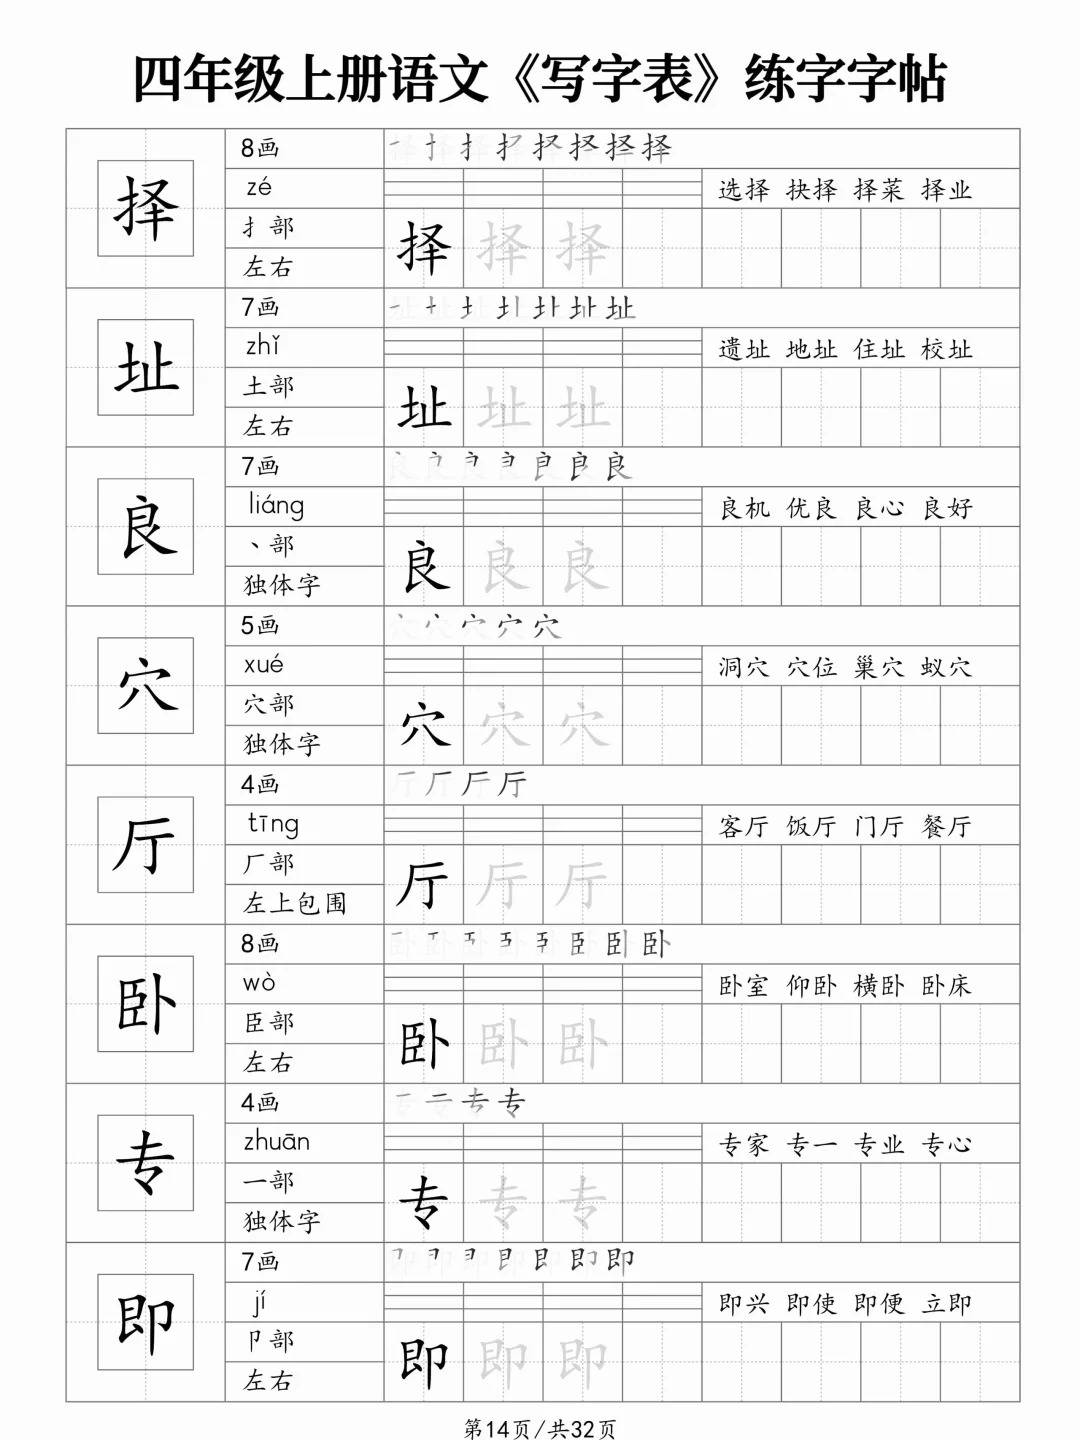 四年级上册语文《写字表》练字字帖
择
8画
zé
扌部
左右
选择 抉择 择菜 择业
择 择 择
址
7画
zhǐ
土部
左右
遗址 地址 住址 校址
址 址 址
良
7画
liáng
丶部
独体字
良机 优良 良心 良好
良 良 良
穴
5画
xué
穴部
独体字
洞穴 穴位 巢穴 蚁穴
穴 穴 穴
厅
4画
tīng
厂部
左上包围
客厅 饭厅 门厅 餐厅
厅 厅 厅
卧
8画
wò
臣部
左右
卧室 仰卧 横卧 卧床
卧 卧 卧
专
4画
zhuān
一部
独体字
专家 专一 专业 专心
专 专 专
即
7画
jí
卩部
左右
即兴 即使 即便 立即
即 即 即
第14页/共32页